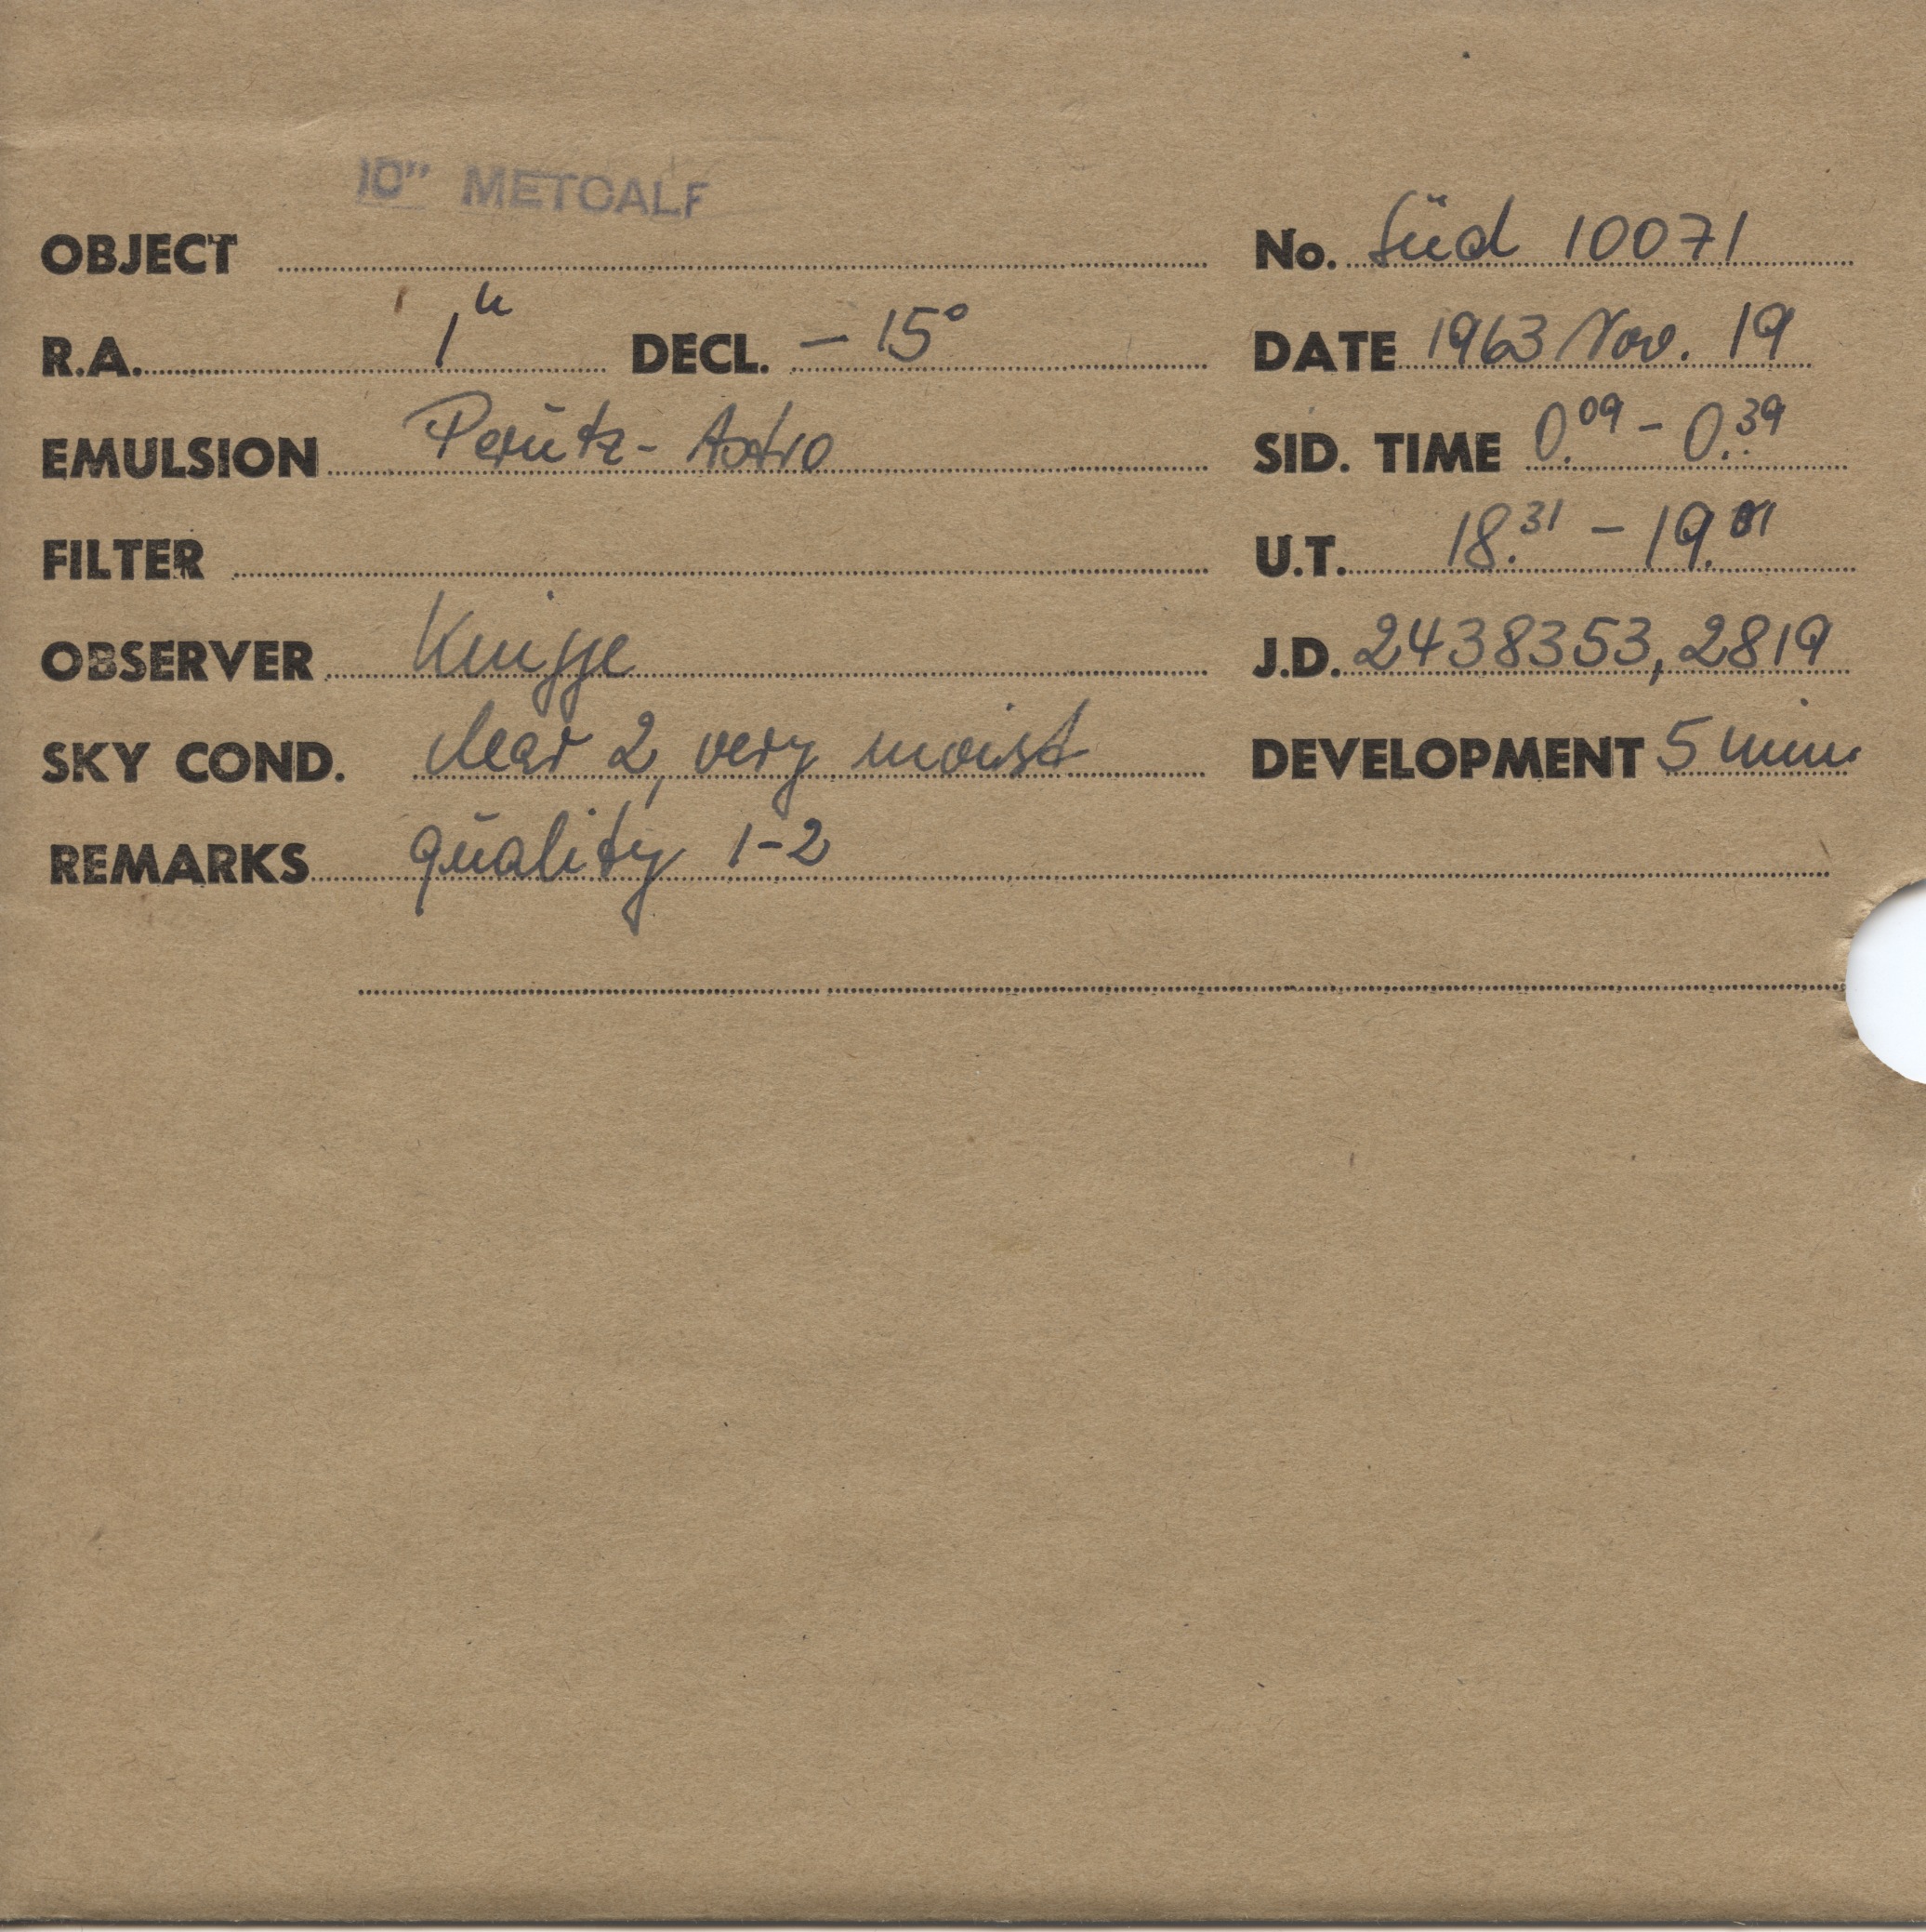 10" METCALF
OBJECT No. Süd 10071
R.A. 1h DECL. - 15° DATE 1963 Nov. 19
EMULSION Perutz- Astro SID. TIME 0.09 - 0.39
FILTER U.T. 18.31 - 19.01
OBSERVER Knigge J.D. 2438353,2819
SKY COND. clear 2, very moist DEVELOPMENT 5 min
REMARKS quality 1-2